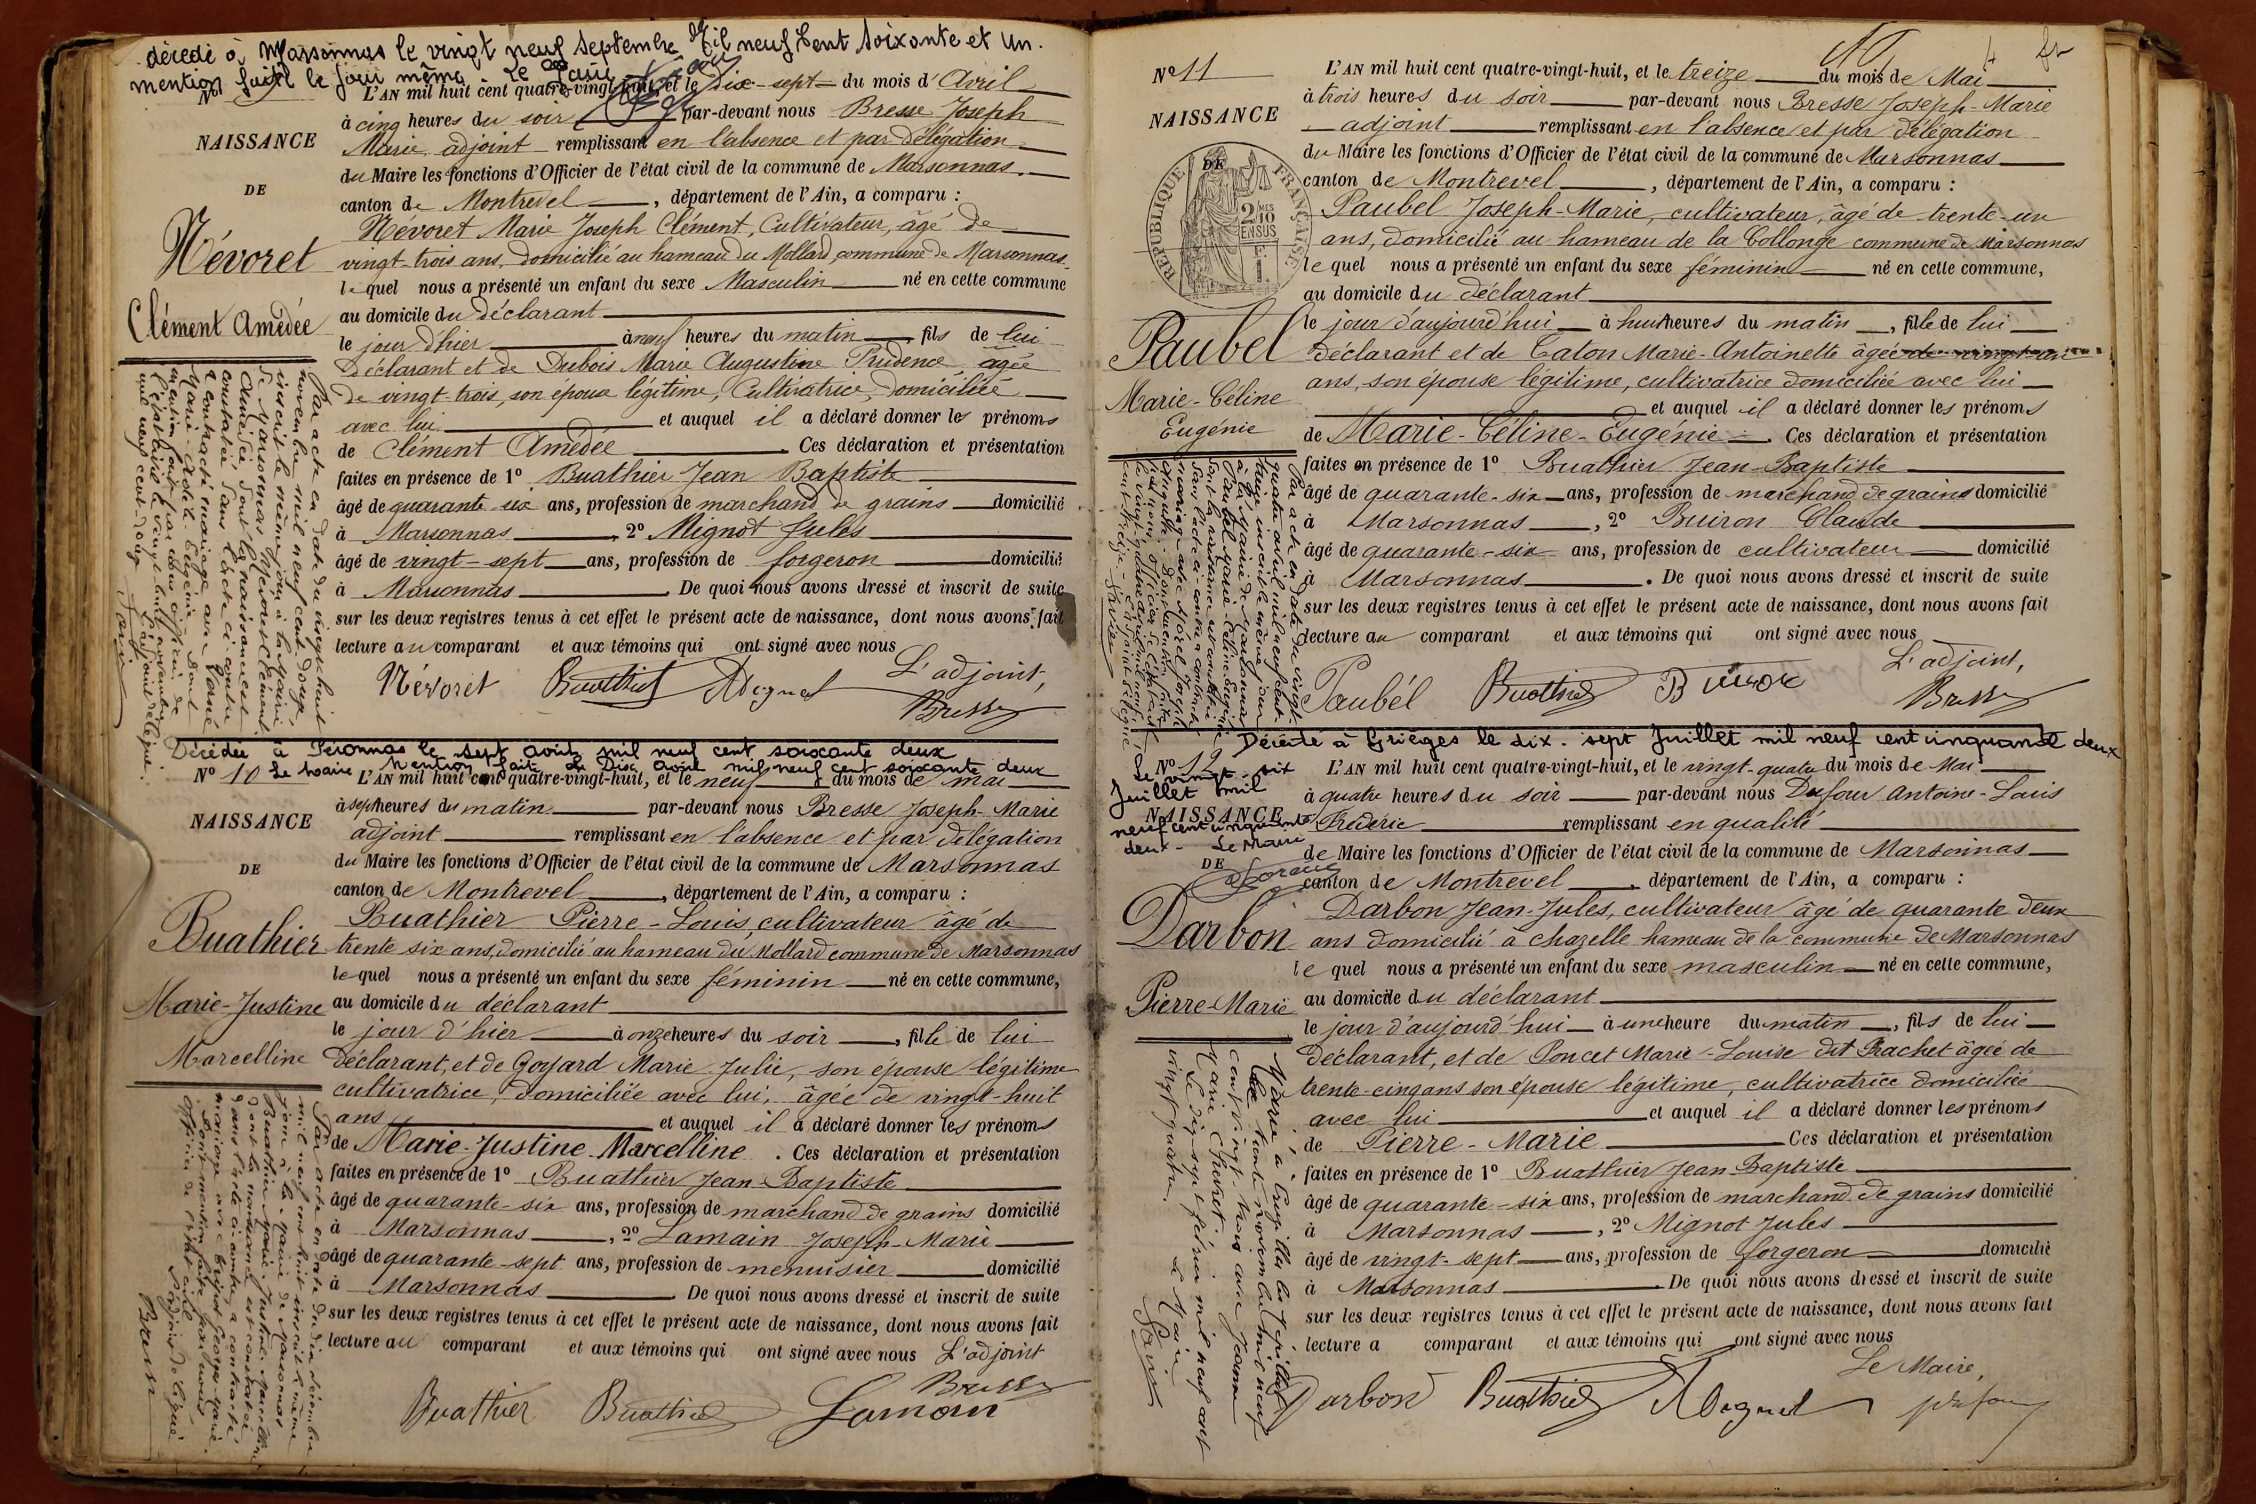 décédé à Marsonnas le vingt neuf Septembre Mil neuf Cent Soixante et Un.
mention faite le jour même. Le
L'AN mil huit cent quatre-vingt-huit, et le dix-sept du mois d'Avril
à cinq heures du soir par-devant nous Bresse Joseph
NAISSANCE
Marie adjoint remplissant en l'absence et par délégation
du Maire les fonctions d'Officier de l'état civil de la commune de Marsonnas.
DE
canton de Montrevel, département de l'Ain, a comparu :
Névoret Marie Joseph Clément, Cultivateur, âgé de
Névoret
vingt-trois ans, domicilié au hameau du Mollard, commune de Marsonnas.
lequel nous a présenté un enfant du sexe Masculin né en cette commune
Clément Amédée
au domicile du déclarant
le jour d'hier à neuf heures du matin, fils de lui
Déclarant et de Dubois Marie Augustine Prudence, âgée
de vingt-trois, son épouse légitime, Cultivatrice, domiciliée
avec lui et auquel il a déclaré donner les prénoms
de Clément Amédée. Ces déclaration et présentation
faites en présence de 1° Buathier Jean Baptiste
âgé de quarante six ans, profession de marchand de grains domicilié
à Marsonnas, 2° Mignot Jules
âgé de vingt-sept ans, profession de forgeron domicilié
à Marsonnas. De quoi nous avons dressé et inscrit de suite
sur les deux registres tenus à cet effet le présent acte de naissance, dont nous avons fait
lecture au comparant et aux témoins qui ont signé avec nous
L'adjoint,
Névoret Buathier Mignot Bresse
Par acte en date du vingt huit
novembre mil neuf cent douze,
inscrit le même jour à la Mairie
de Marsonnas Névoret Clément
Amédée dont la naissance est
constatée dans l'acte ci contre
a contracté mariage avec
Marie Adèle Eugénie dont
mention faite par nous officier de
l'état civil le vingt huit novembre
mil neuf cent douze
L'adjoint délégué.
Décédée à Péronnas le sept Août mil neuf cent soixante deux
Mention faite le Dix Août mil neuf cent soixante deux
Le Maire
N° 10
L'AN mil huit cent quatre-vingt-huit, et le neuf du mois de mai
à sept heures du matin par-devant nous Bresse Joseph-Marie
NAISSANCE
adjoint remplissant en l'absence et par délégation
du Maire les fonctions d'Officier de l'état civil de la commune de Marsonnas
DE
canton de Montrevel, département de l'Ain, a comparu :
Buathier Pierre-Louis, cultivateur âgé de
Buathier
trente six ans, domicilié au hameau du Mollard commune de Marsonnas
lequel nous a présenté un enfant du sexe féminin né en cette commune,
Marie-Justine
au domicile du déclarant
le jour d'hier à onze heures du soir, fille de lui
Marcelline
déclarant, et de Goyard Marie Julie, son épouse légitime
cultivatrice, domiciliée avec lui, âgée de vingt-huit
ans et auquel il a déclaré donner les prénoms
de Marie-Justine-Marcelline. Ces déclaration et présentation
faites en présence de 1° Buathier Jean-Baptiste
âgé de quarante-six ans, profession de marchand de grains domicilié
à Marsonnas, 2° Lamain Joseph-Marie
âgé de quarante-sept ans, profession de menuisier domicilié
à Marsonnas. De quoi nous avons dressé et inscrit de suite
sur les deux registres tenus à cet effet le présent acte de naissance, dont nous avons fait
lecture au comparant et aux témoins qui ont signé avec nous L'adjoint
Bresse
Buathier Buathier Lamain
Par acte en date du
mil neuf cent huit inscrit le même
jour à la mairie de Marsonnas
Buathier Marie-Justine-Marcelline
dont la naissance est constatée
dans l'acte ci contre, a contracté
mariage avec
Dont mention faite par nous
officier de l'état civil
L'adjoint délégué
Bresse
N° 11
L'AN mil huit cent quatre-vingt-huit, et le treize du mois de Mai
à trois heures du soir par-devant nous Bresse Joseph-Marie
NAISSANCE
adjoint remplissant en l'absence et par délégation
du Maire les fonctions d'Officier de l'état civil de la commune de Marsonnas
DE
RÉPUBLIQUE FRANÇAISE
2 MES
2/10
EN SUS
canton de Montrevel, département de l'Ain, a comparu :
Paubel Joseph-Marie, cultivateur, âgé de trente-un
ans, domicilié au hameau de la Collonge commune de Marsonnas
lequel nous a présenté un enfant du sexe féminin né en cette commune,
au domicile du déclarant
le jour d'aujourd'hui à huit heures du matin, fille de lui
Paubel
déclarant et de Caton Marie-Antoinette âgée de vingt
ans, son épouse légitime, cultivatrice domiciliée avec lui
Marie-Céline
et auquel il a déclaré donner les prénoms
Eugénie
de Marie-Céline-Eugénie. Ces déclaration et présentation
faites en présence de 1° Buathier Jean-Baptiste
âgé de quarante-six ans, profession de marchand de grains domicilié
à Marsonnas, 2° Buiron Claude
âgé de quarante-six ans, profession de cultivateur domicilié
à Marsonnas. De quoi nous avons dressé et inscrit de suite
sur les deux registres tenus à cet effet le présent acte de naissance, dont nous avons fait
lecture au comparant et aux témoins qui ont signé avec nous
L'adjoint,
Paubel Buathier Buiron Bresse
Par acte en date du vingt
quatre avril mil neuf cent
treize, inscrit le même jour
à la Mairie de Marsonnas
Paubel Marie Céline Eugénie
dont la naissance est constatée
dans l'acte ci-contre a contracté
mariage avec Morel Joseph
Décédée à Grièges le dix-sept Juillet mil neuf cent cinquante deux
N° 12
Le vingt-six
Juillet mil
neuf cent cinquante
deux. Le Maire
L'AN mil huit cent quatre-vingt-huit, et le vingt-quatre du mois de Mai
à quatre heures du soir par-devant nous Dufour Antoine-Louis
NAISSANCE
Frédéric remplissant en qualité
de Maire les fonctions d'Officier de l'état civil de la commune de Marsonnas
DE
canton de Montrevel, département de l'Ain, a comparu :
Darbon Jean-Jules, cultivateur âgé de quarante deux
Darbon
ans domicilié à chazelle hameau de la commune de Marsonnas
lequel nous a présenté un enfant du sexe masculin né en cette commune,
Pierre-Marie
au domicile du déclarant
le jour d'aujourd'hui à une heure du matin, fils de lui
déclarant, et de Poncet Marie-Louise dit Prachet âgée de
trente-cinq ans son épouse légitime, cultivatrice domiciliée
avec lui et auquel il a déclaré donner les prénoms
de Pierre-Marie Ces déclaration et présentation
faites en présence de 1° Buathier Jean-Baptiste
âgé de quarante-six ans, profession de marchand de grains domicilié
à Marsonnas, 2° Mignot Jules
âgé de vingt-sept ans, profession de forgeron domicilié
à Marsonnas. De quoi nous avons dressé et inscrit de suite
sur les deux registres tenus à cet effet le présent acte de naissance, dont nous avons fait
lecture a comparant et aux témoins qui ont signé avec nous
Le Maire,
Darbon Buathier Mignot Dufour
Marié à Cruzilles les Mépillat
le trente novembre mil neuf
cent vingt-trois avec Jeanne
Marie Chevret.
Le dix-sept février mil neuf cent
vingt quatre. Le Maire